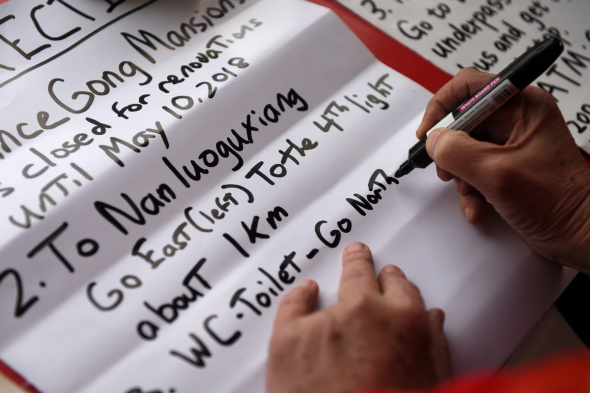 ECTI
nce Gong Mansion
s closed for renovations
until May 10, 2018
2. To Nanluoguxiang
Go East (left) To the 4th light
about 1km
WC. Toilet - Go North
3.
Go to
underpass
us and get
ATM.
200
WHITE BOARD PEN